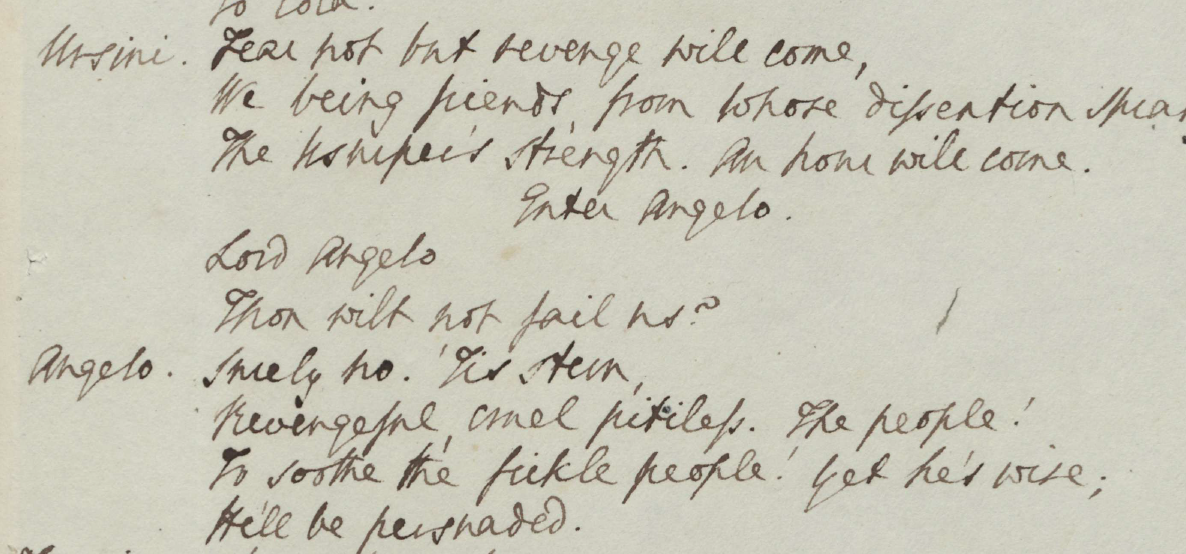 to Cola.
Ursini. Fear not but revenge will come,
We being friends, from whose dissention
The Usurper's strength. An hour will come.
Enter Angelo.
Lord Angelo
Thou wilt not fail us?
Angelo. Surely no. 'Tis stern,
Revengeful, cruel pitiless. The people!
To soothe the fickle people! Yet he's wise;
He'll be persuaded.